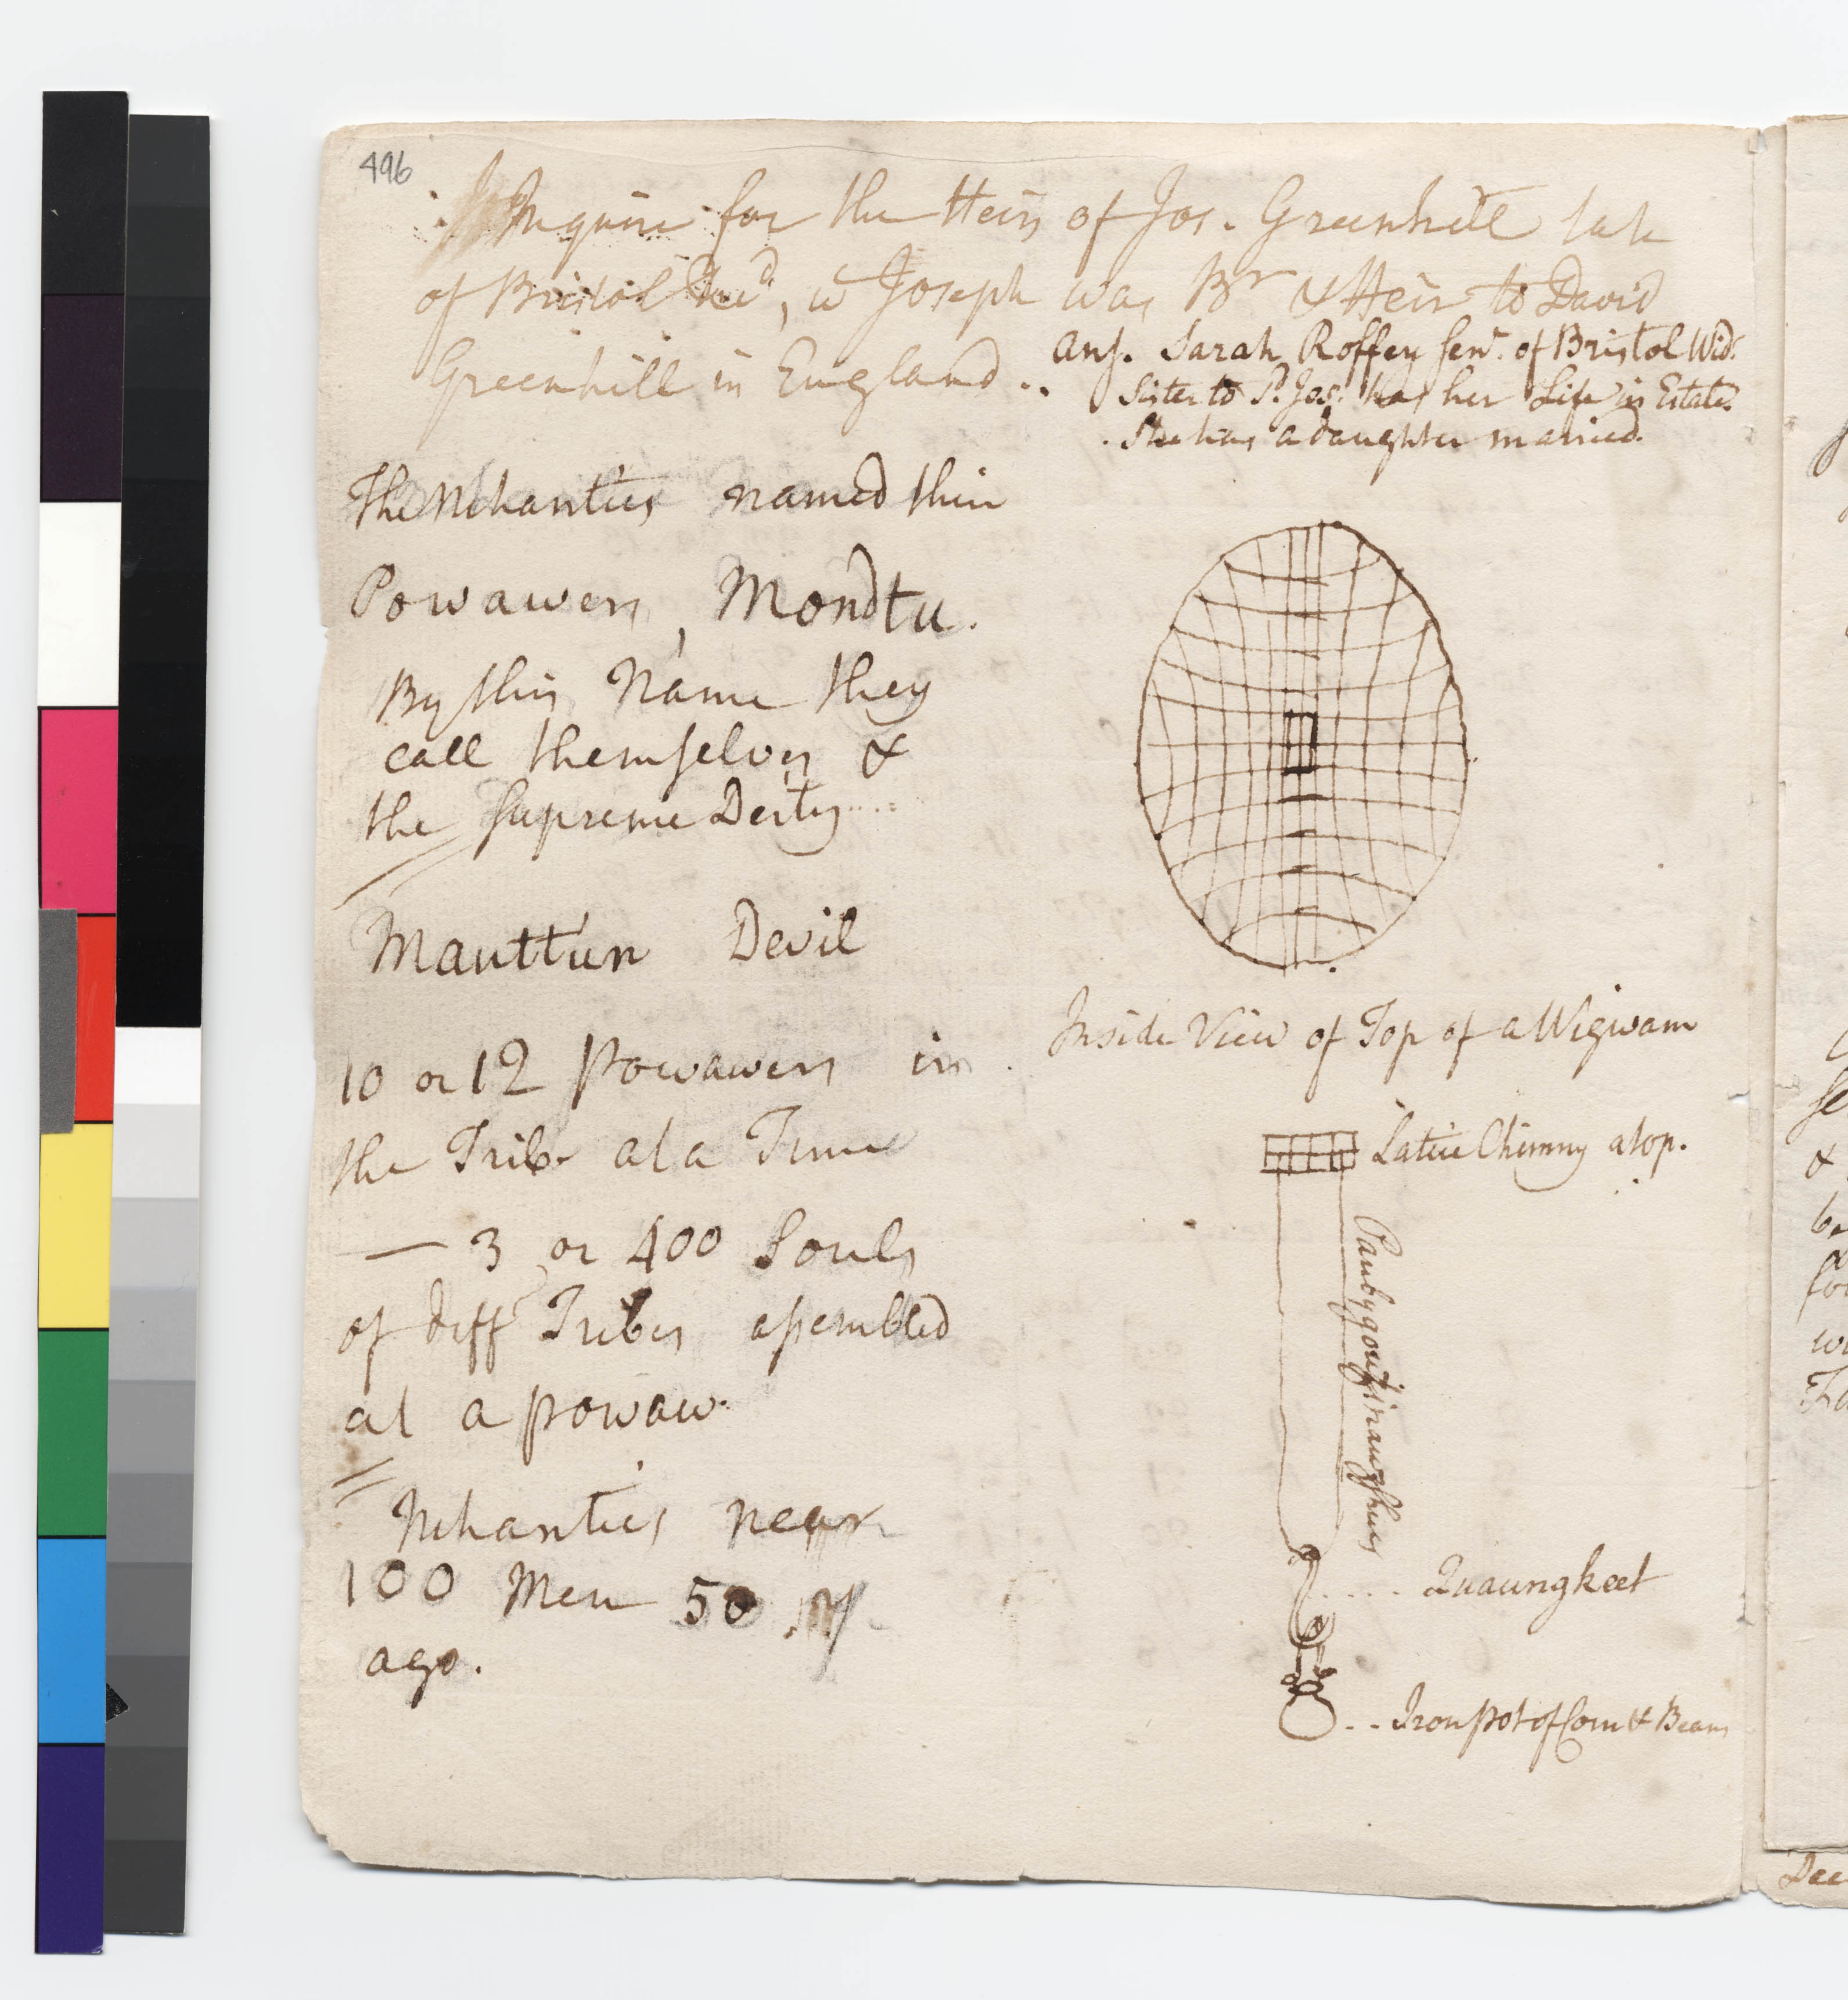 496
Inquire for the Heirs of Jos. Greenhill late
of Bristol Decd, w Joseph was Br & Heir to David
Greenhill in England ..
Ans. Sarah Roffey senr. of Bristol Wid.
Sister to S. Jos. has her Life in Estate.
She has a daughter married.
The Nehantics named their
Powawers, Mondtu.
By this Name they
call themselves &
the Supreme Deity ....
Mauttun Devil
10 or 12 Powawers in
the Tribe at a Time
— 3 or 400 Souls
of diff Tribes assembled
at a powaw.
Nehantics near
100 Men 50 y
ago.
Inside View of Top of a Wigwam
Latice Chimny atop.
.... Quaungkeet
... Iron pot of Corn & Beans